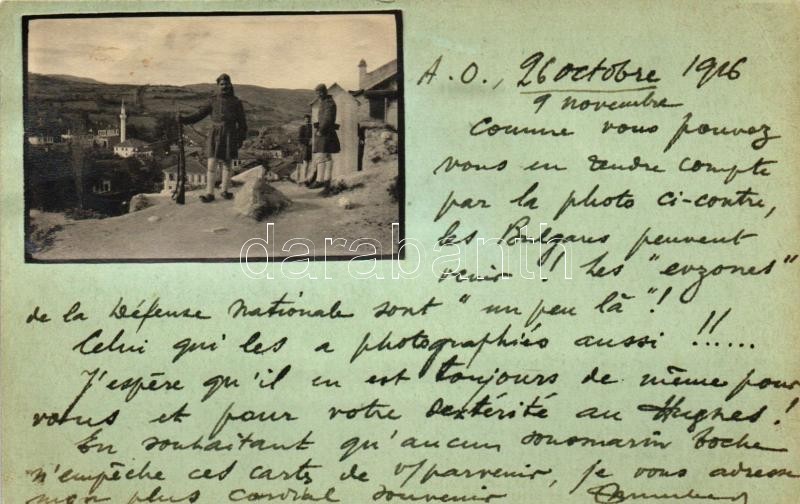 A.O., 26 octobre 1916
9 novembre
Comme vous pouvez
vous en rendre compte
par la photo ci-contre,
les Bulgares peuvent
venir ! Les "evzones"
de la Défense Nationale sont "un peu là"!
Celui qui les a photographiés aussi !!.....
J'espère qu'il en est toujours de même pour
vous et pour votre dextérité au Hughes!
En souhaitant qu'aucun sousmarin boche
n'empêche ces cartes de v/parvenir, je vous adresse
mon plus cordial souvenir
darabanth